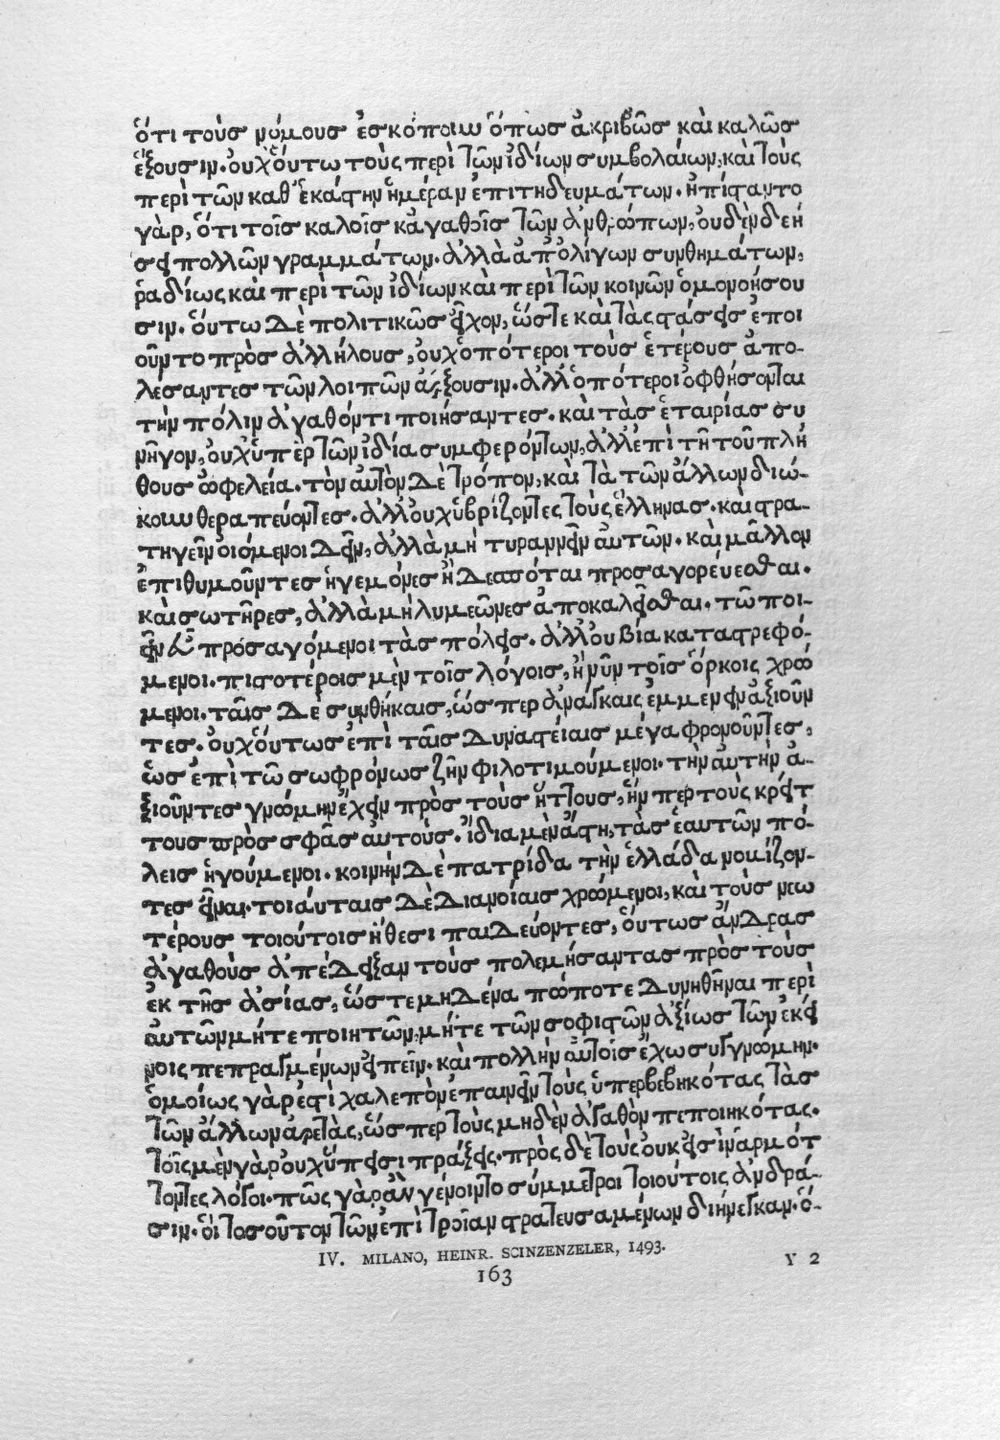 ὅτι τοὺς νόμους ἐσκόπουν ὅπως ἀκριβῶς καὶ καλῶς
ἕξουσιν. οὐχ' ὅυτω τοὺς περὶ τῶν ἰδίων συμβολαίων, καὶ τοὺς
περὶ τῶν καθ' ἑκάστην ἡμέραν ἐπιτηδευμάτων. ἠπίσταντο
γὰρ, ὅτι τοῖς καλοῖς κἀγαθοῖς τῶν ἀνθρώπων, ουδὲν δεή
σει πολλῶν γραμμάτων. ἀλλὰ ἀπ' ὀλίγων συνθημάτων,
ῥαδίως καὶ περὶ τῶν ἰδίων καὶ περὶ τῶν κοινῶν ὁμονοήσου
σιν. ὅυτω δὲ πολιτικῶς εἶχον, ὥστε καὶ τὰς στάσεις ἐποι
οῦντο πρὸς ἀλλήλους, ὀυχ' ὁπότεροι τοὺς ἑτέρους ἀπο-
λέσαντες τῶν λοιπῶν ἄρξουσιν. ἀλλ' ὁπότεροι ὀφθήσονται
τὴν πόλιν ἀγαθόν τι ποιήσαντες. καὶ τὰς ἑταιρίας συ
νῆγον, ὀυχ' ὑπὲρ τῶν ἰδία συμφερόντων, ἀλλ' ἐπὶ τῆ τοῦ πλή
θους ὠφελεία. τὸν ἀυτὸν δὲ τρόπον, καὶ τὰ τῶν ἄλλων διώ-
κουν θεραπεύοντες. ἀλλ' ουχ' ὑβρίζοντες τοὺς ἕλληνας. καὶ στρα-
τηγεῖν οιόμενοι δεῖν, ἀλλὰ μὴ τυραννεῖν ἀυτῶν. καὶ μᾶλλον
ἐπιθυμοῦντες ἡγεμόνες ἢ δεσπόται προσαγορέυεσθαι.
καὶ σωτῆρες, ἀλλὰ μὴ λυμεῶνες ἀποκαλεῖσθαι. τῶ ποι-
εῖν εὖ προσαγόμενοι τὰς πόλεις. ἀλλ' ου βία καταστρεφό-
μενοι. πιστοτέροις μὲν τοῖς λόγοις, ἢ νῦν τοῖς ὅρκοις χρώ
μενοι. ταῖς δὲ συνθήκαις, ὥσπερ ἀνάγκαις ἐμμένειν ἀξιοῦν
τες. ὀυχ' ὅυτως ἐπὶ ταῖς δυναστείαις μέγα φρονοῦντες,
ὡς ἐπὶ τῶ σωφρόνως ζῆν φιλοτιμούμενοι. τὴν ἀυτὴν ἀ-
ξιοῦντες γνώμην ἔχειν πρὸς τοὺς ἥττους, ἥνπερ τοὺς κρείτ
τους πρὸς σφᾶς ἀυτούς. ἴδια μὲν ἄστη, τὰς ἑαυτῶν πό-
λεις ἡγούμενοι. κοινὴν δὲ πατρίδα τὴν ἑλλάδα νομίζον-
τες εἶναι. τοιάυταις δὲ διανοίαις χρώμενοι, καὶ τοὺς νεω
τέρους τοιούτοις ἤθεσι παιδεύοντες, ὅυτως ἄνδρας
ἀγαθοὺς ἀπέδειξαν τοὺς πολεμήσαντας πρὸς τοὺς
ἐκ τῆς ἀσίας, ὥστε μηδένα πώποτε δυνηθῆναι περὶ
ἀυτῶν μήτε ποιητῶν, μήτε τῶν σοφιστῶν ἀξίως τῶν ἐκεί
νοις πεπραγμένων ειπεῖν. καὶ πολλὴν ἀυτοῖς ἔχω συγγνώμην.
ὁμοίως γὰρ ἐστὶ χαλεπὸν ἐπαινεῖν τοὺς ὑπερβεβηκότας τὰς
τῶν ἄλλων ἀρετὰς, ὥσπερ τοὺς μηδὲν ἀγαθὸν πεποιηκότας.
τοῖς μὲν γὰρ ουχ' ὕπεισι πράξεις. πρὸς δὲ τοὺς ουκ εισὶν ἁρμότ
τοντες λόγοι. πῶς γὰρ ἂν γένοιντο σύμμετροι τοιούτοις ἀνδρά-
σιν. ὅι τοσοῦτον τῶν ἐπὶ τροίαν στρατευσαμένων διήνεγκαν. ὅ-
IV. MILANO, HEINR. SCINZENZELER, 1493.
Y 2
163